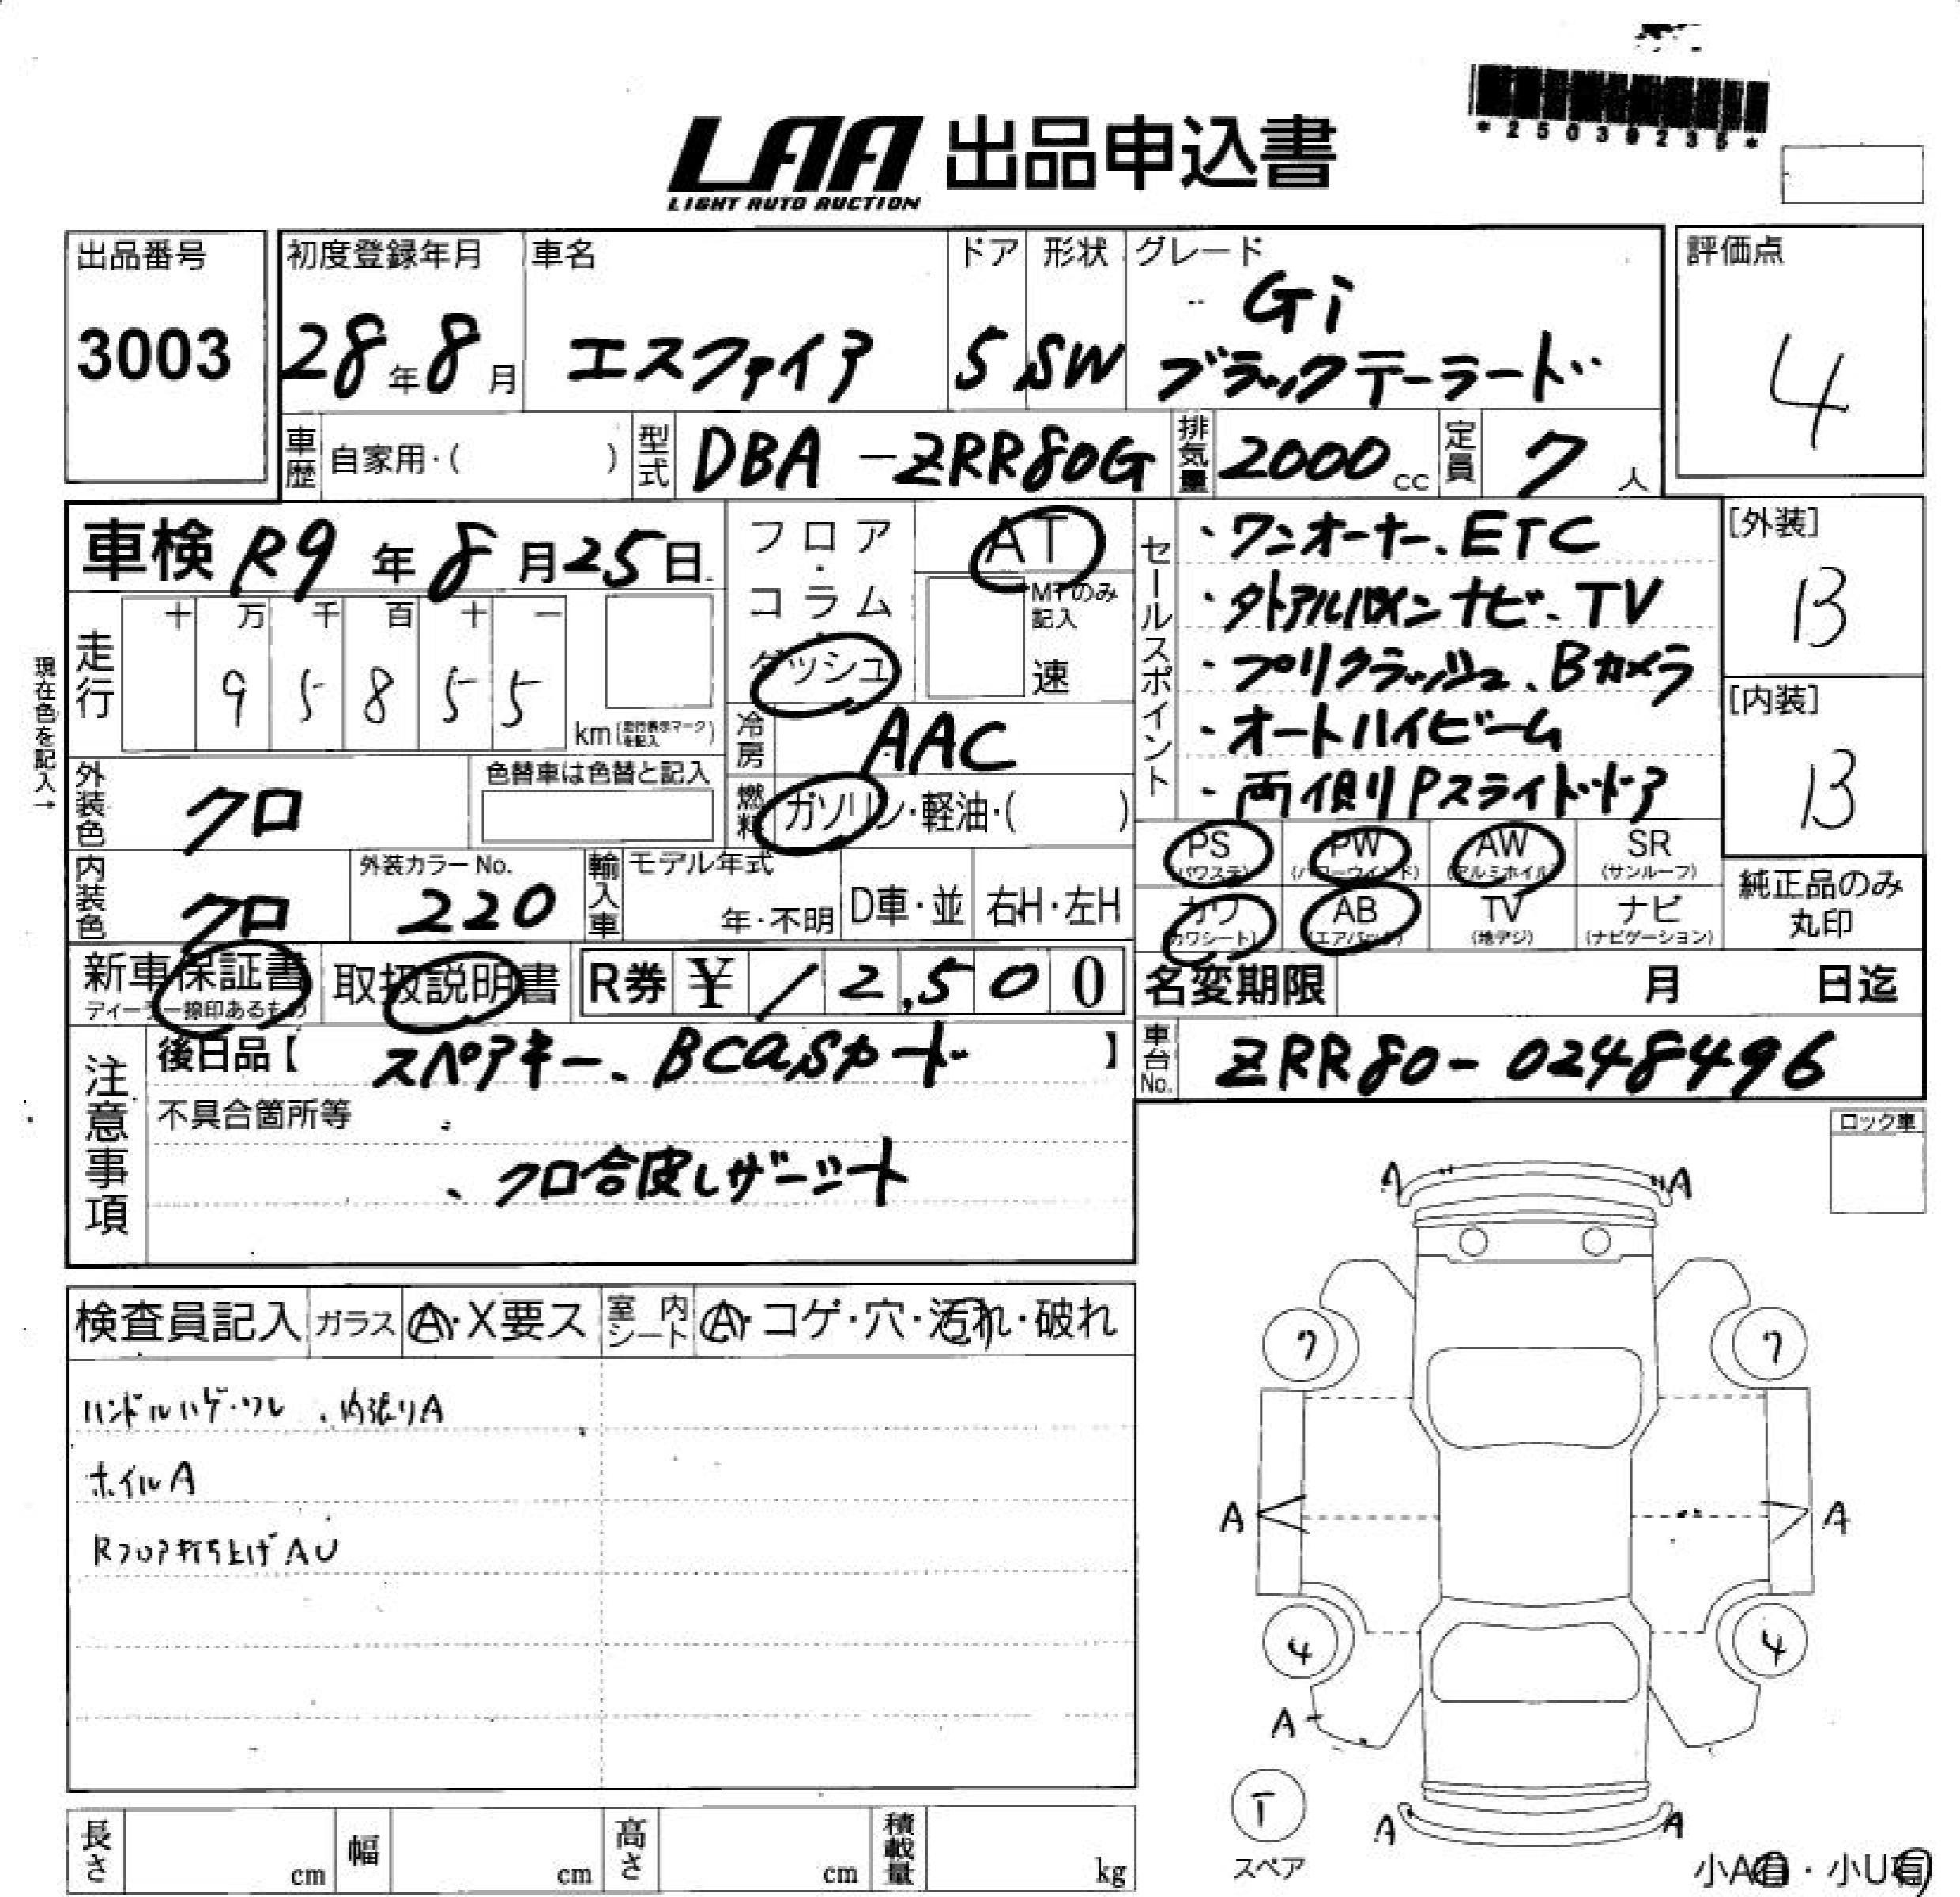 *25039235*
LAA 出品申込書
LIGHT AUTO AUCTION
出品番号
3003
初度登録年月
28年8月
車名
エスファイア
ドア
5
形状
SW
グレード
Gi
ブラックテーラード
評価点
4
車歴 自家用・( )
型式 DBA-ZRR80G
排気量 2000cc
定員 7人
車検 R9年8月25日
走行
十 万 千 百 十 一
9 5 8 5 5
km(走行表示マークを記入)
現在色を記入→
フロア・コラム・ダッシュ
AT
MTのみ記入
速
冷房 AAC
燃料 ガソリン・軽油・( )
セールスポイント
・ワンオーナー、ETC
・タトアルパイン ナビ、TV
・プリクラッシュ、Bカメラ
・オートハイビーム
・両側Pスライドドア
[外装]
B
[内装]
B
外装色 クロ
色替車は色替と記入
内装色 クロ
外装カラーNo.
220
輸入車
モデル年式
年・不明
D車・並
右H・左H
PS
(パワステ)
PW
(パワーウインド)
AW
(アルミホイル)
SR
(サンルーフ)
カワ
(カワシート)
AB
(エアバック)
TV
(地デジ)
ナビ
(ナビゲーション)
純正品のみ
丸印
新車保証書
ディーラー捺印あるもの
取扱説明書
R券 ¥12,500
名変期限 月 日迄
車台No. ZRR80-0248496
注意事項
後日品【 スペアキー、BCASカード 】
不具合箇所等
、クロ合皮レザーシート
ロック車
検査員記入
ガラス A・X要ス
室内シート A・コゲ・穴・汚れ・破れ
ハンドルハゲ・ワレ、内張りA
ホイルA
Rフロア打ち上げAU
A A
7 7
A A
4 4
A
T
スペア
A A
小A有・小U有
長さ cm
幅 cm
高さ cm
積載量 kg